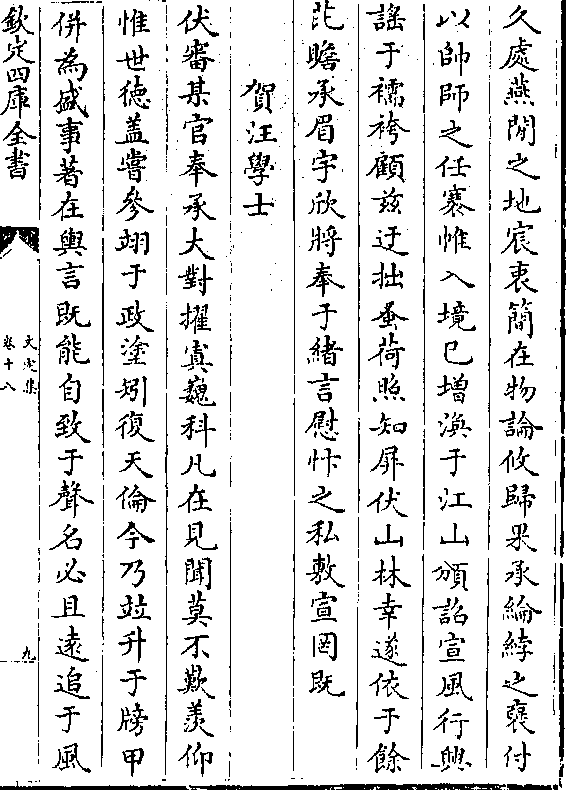 久處燕閒之地宸衷簡在物論攸歸果承綸綍之褒付
以帥師之任褰帷入境已增渙于江山頒詔宣風行興
謡于襦袴顧兹迂拙蚤荷照知屏伏山林幸遂依于餘
芘瞻承眉宇欣將奉于緒言慰忭之私敷宣罔既
賀汪學士
伏審某官奉承大對擢寘巍科凡在見聞莫不歎羨仰
惟世徳盖嘗參翊于政塗矧復天倫今乃竝升于牓甲
併為盛事著在輿言既能自致于聲名必且逺追于風
欽定四庫全書
文定集
卷十八
九